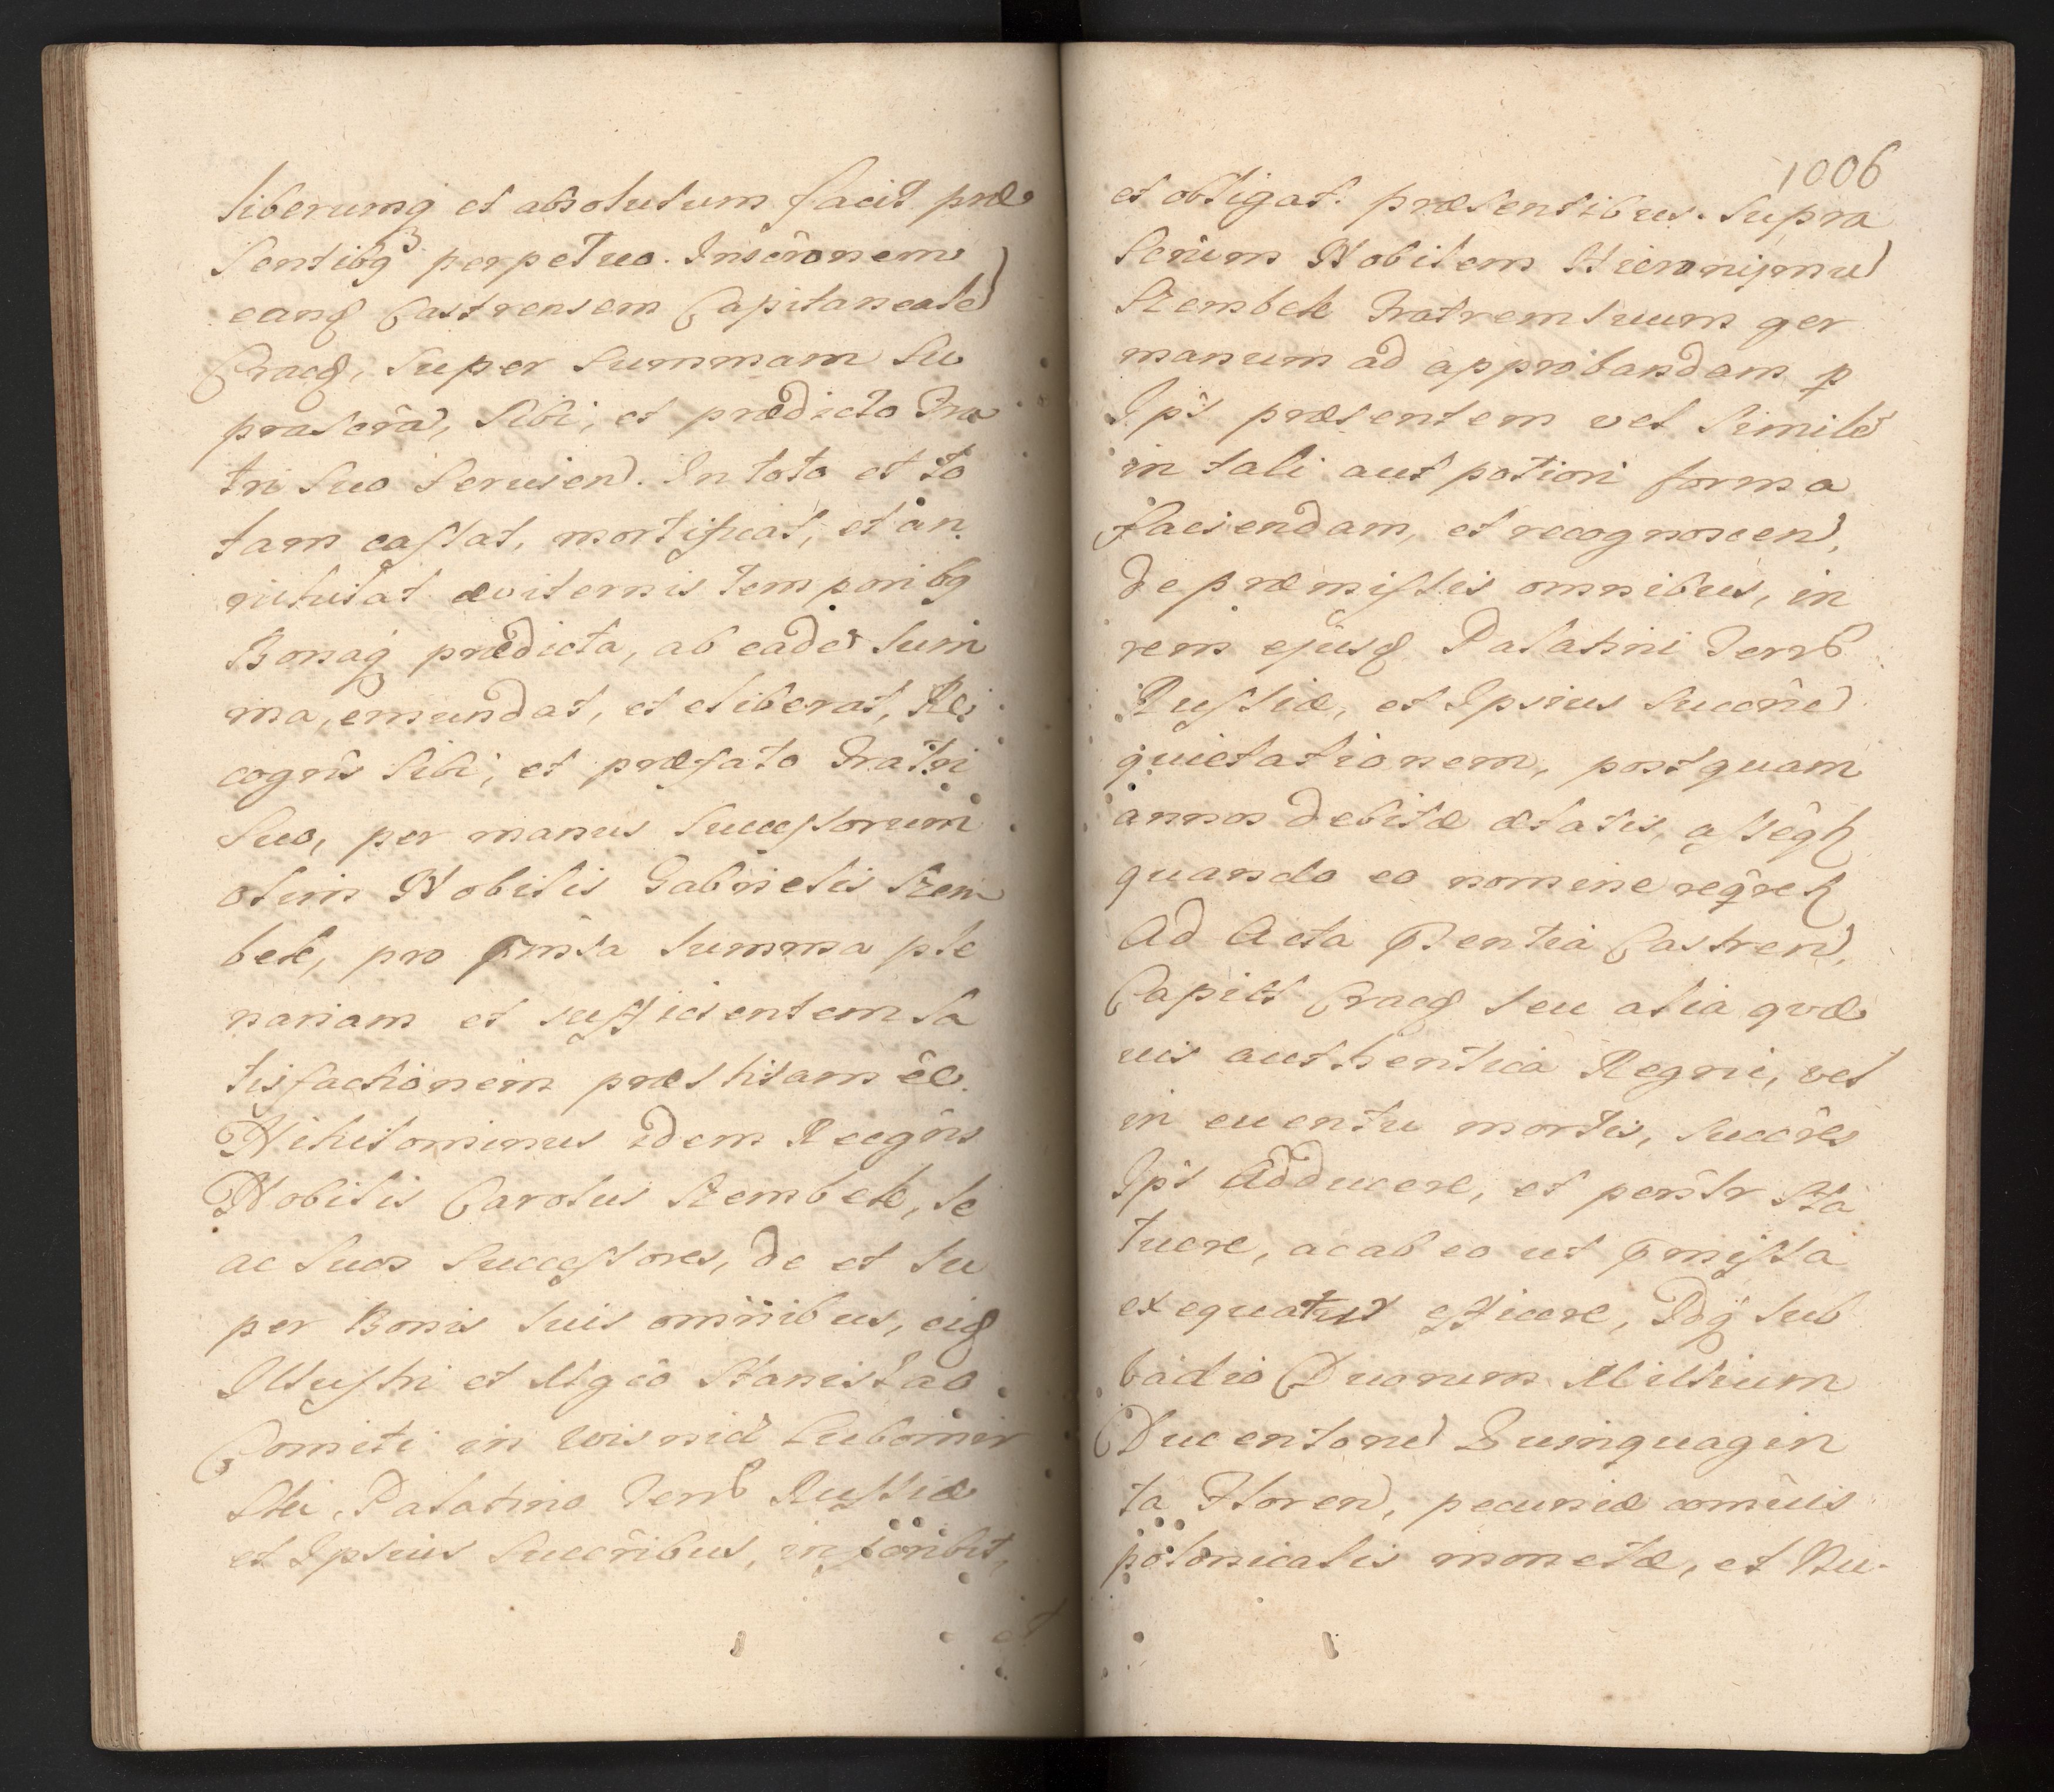 liberumq et absolutum facit præ
sentibq perpetuo. Inscrõnem
eanq Castrensem Capitaneale
Cracq, super summam su
prascrã, sibi, et prædicto Fra
tri suo seruien. In toto et to
tam caſsat, mortificat, et an
nihilat æviternis temporibq
Bonaq prædicta, ab eade sum
ma, emundat, et eliberat, Re
cognŝ sibi, et præfato Fratri
suo, per manus succeſsorum
olim Nobilis Gabrielis Szem
bek, pro pmĩsa summa ple
nariam et sufficientem sa
tisfactionem præstitam eê.
Nihilominus idem Recogñs
Nobilis Carolus Szembek, se
ac suos succeſsores, de et su
per Bonis suis omnibus, eiq
Illuſtri et Mgco Stanislao
Comiti in Wisnic Lubomir
ski, Palatino Terrẽ Ruſsiæ
et Ipsius succribus, inscribit,
et
1006
et obligat. præsentibus. Supra
scrium Nobilem Hieronijmu
Szembek Fratrem suum ger
manum ad approbandam p
Ips præsentem vel simile
in tali aut potiori forma
faciendam, et recognoscen,
de præmiſsis omnibus, in
rem ejusq Palatini Terrẽ
Ruſsiæ, et Ipsius succñe
quietationem, postquam
annos debitæ ætatis, aſseq
quando eo nomine reqret
Ad Acta pñentia Castren,
Capitl Cracq seu alia quæ
uis authentica Regni, vel
in euentu mortis, succres
Ips Adducere, et perstr sta
tuere, ac ab eo ut pmiſsa
exequatur efficere, Idq sub
vadio Duorum Millium
Ducentoru Quinquagin
ta Floren, pecuniæ comuis
polonicalis monetæ, et Nu-